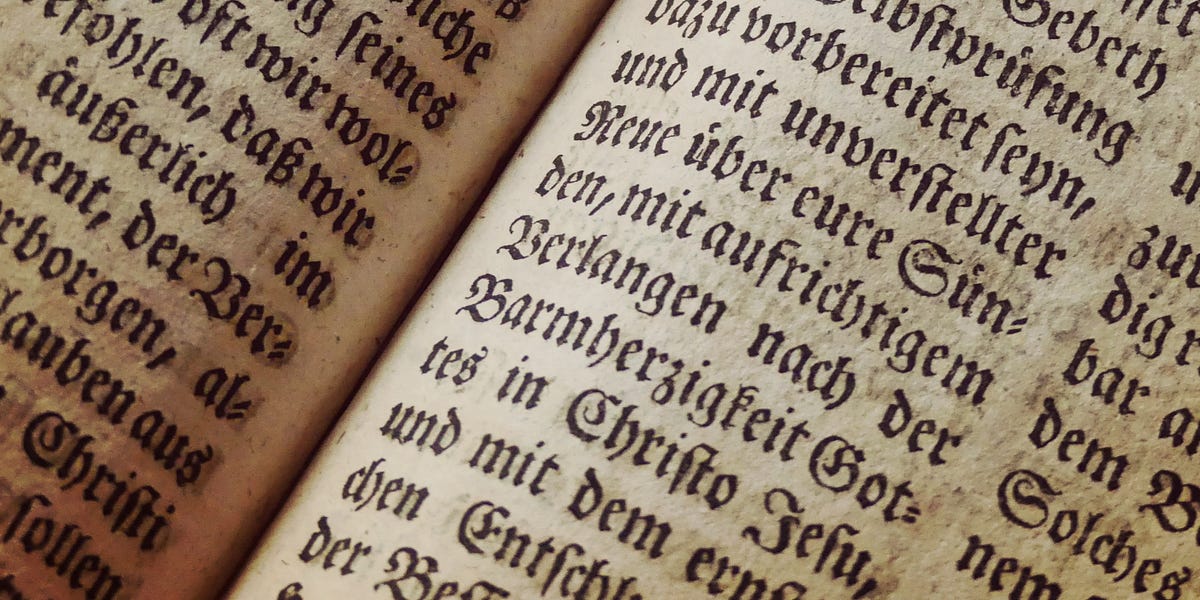 liche
seines
oft wir wol⸗
daß wir
äußerlich im
ment, der Ver⸗
al⸗
aus
Christi
sollen
Gebeth
Selbstprüfung
dazu vorbereitet seyn,
und mit unverstellter
Reue über eure Sün⸗
den, mit aufrichtigem
Verlangen nach der
Barmherzigkeit Got⸗
tes in Christo Jesu,
und mit dem
chen
der
dig
bar
dem
Solches
nem